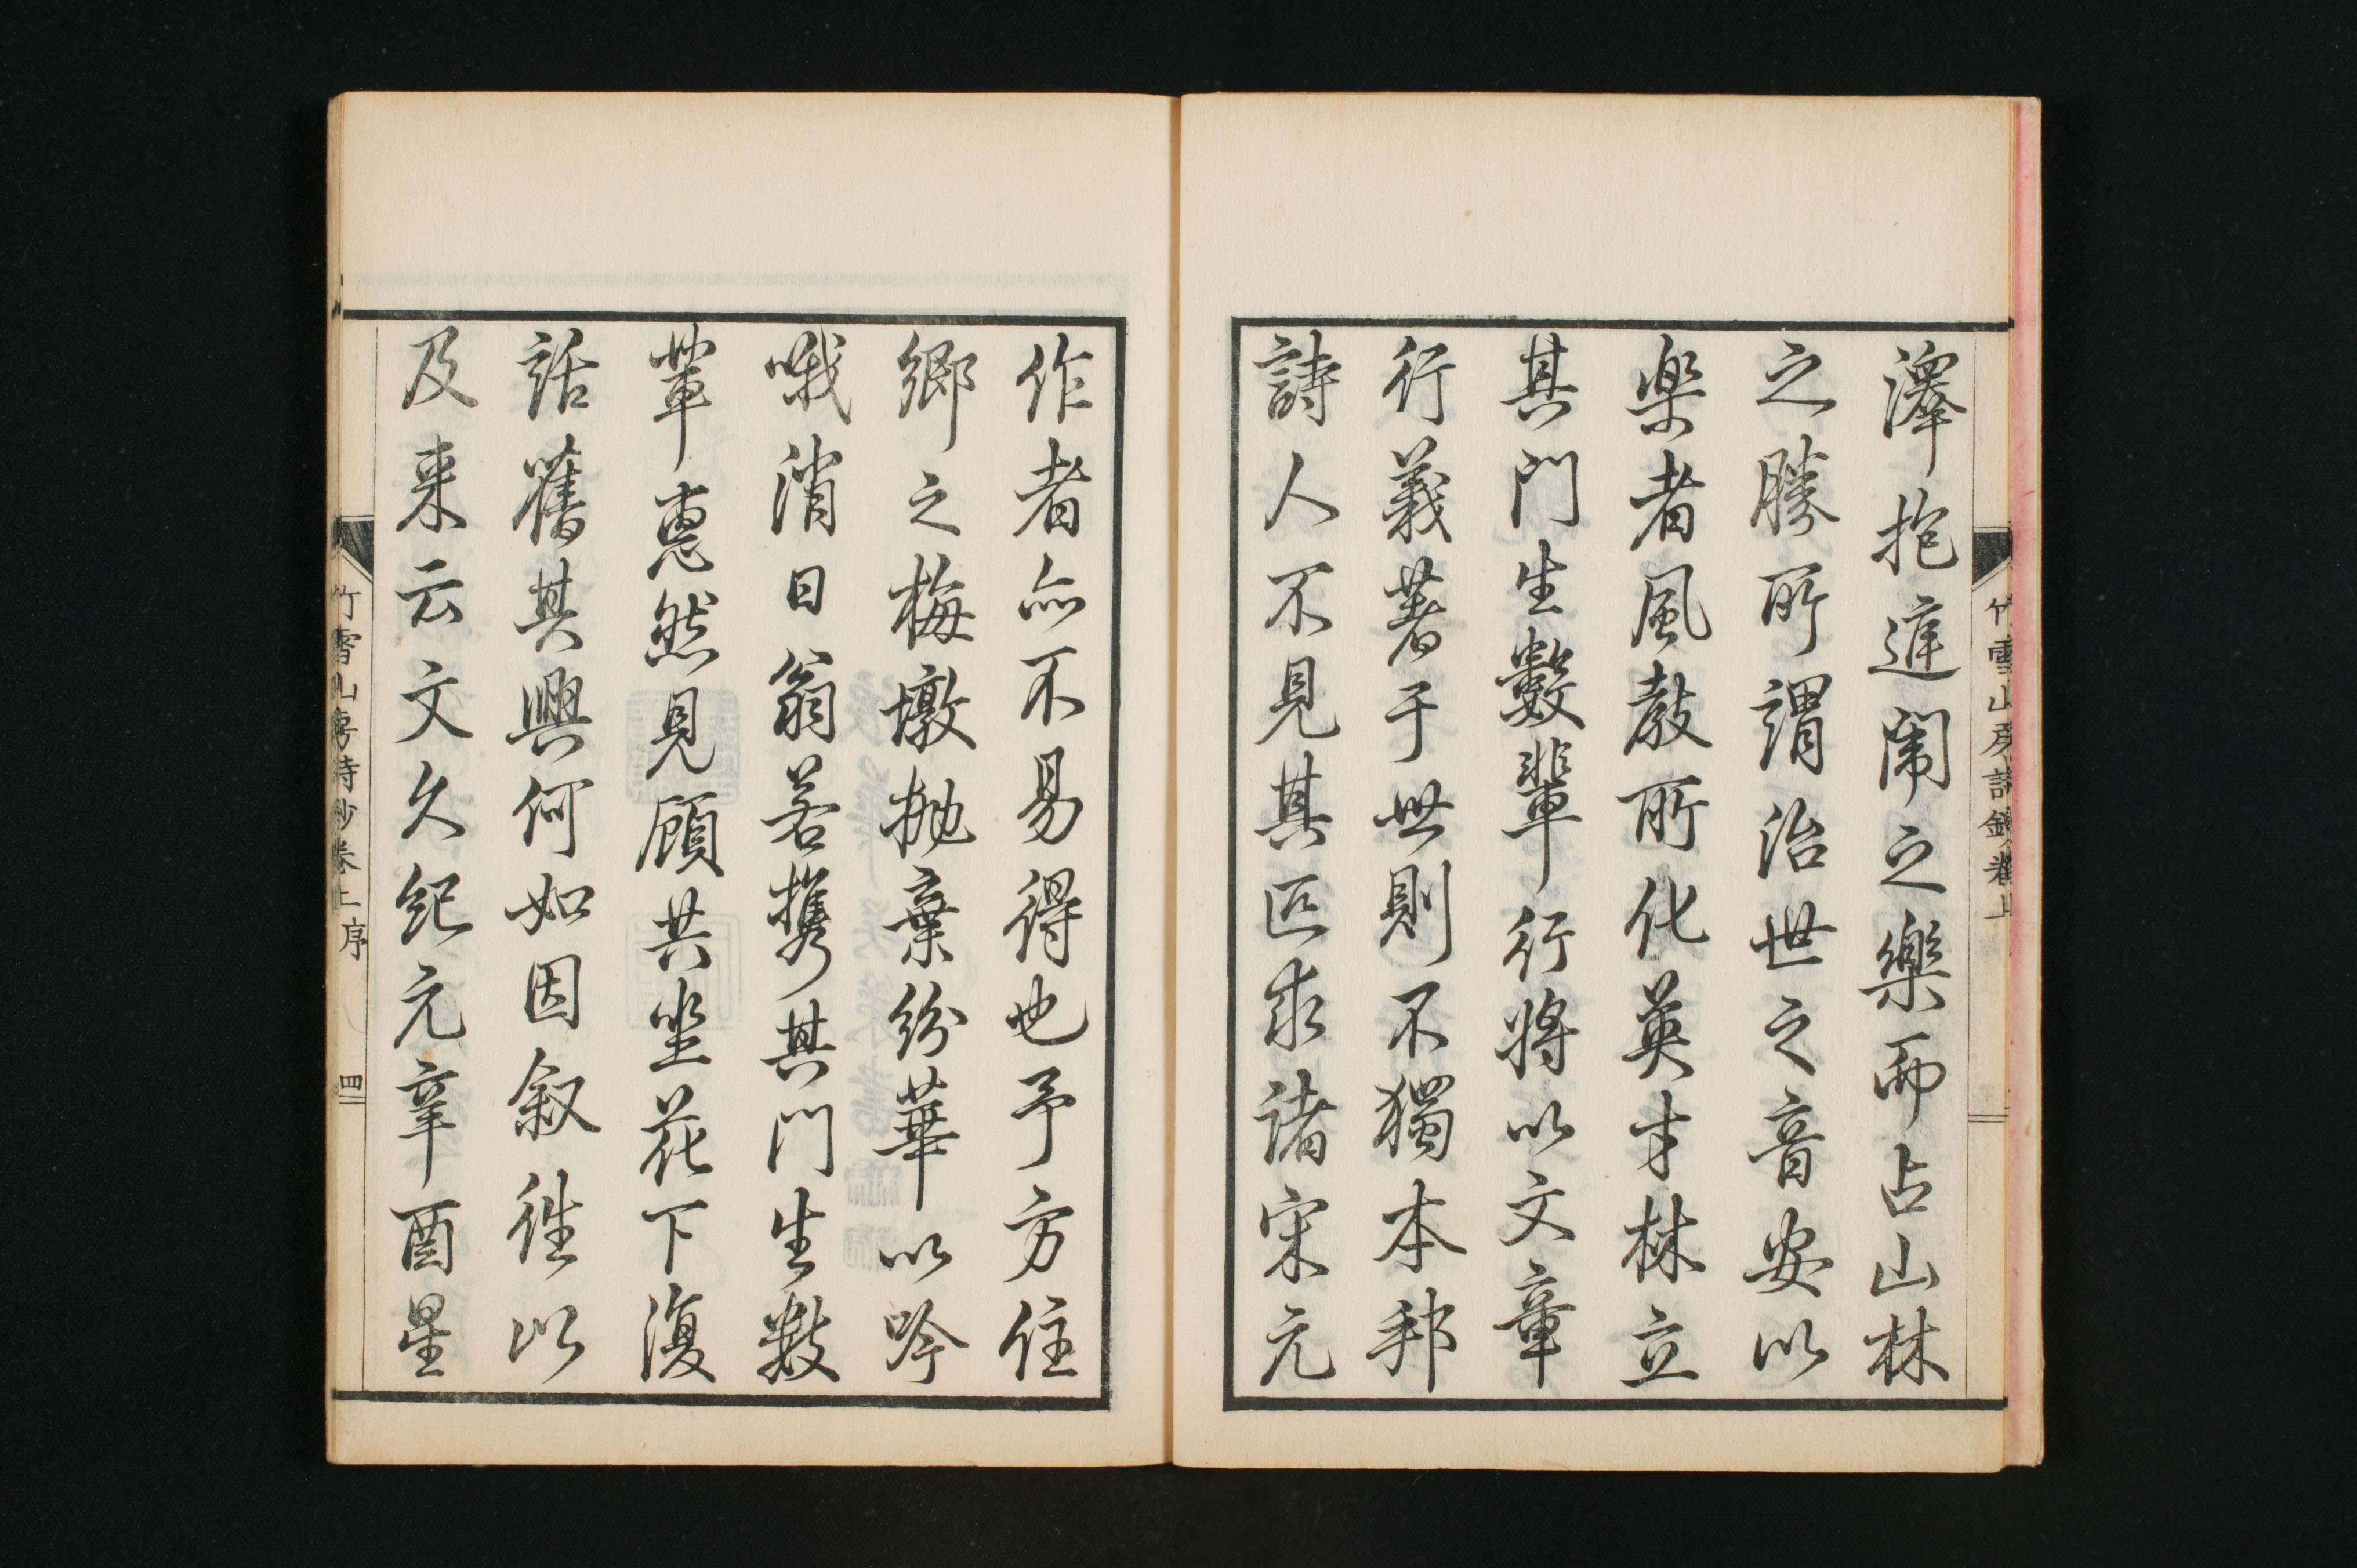 竹雪山房詩鈔卷上
澤抱進闹之樂而占山林
之勝所謂治世之音安以
楽者風敎所化英才林立
其門生數輩行將以文章
行義著于世則不獨本邦
詩人不見其匹求諸宋元
作者亦不易得也予方住
鄉之梅墩抛棄紛華以吟
哦消日翁若携其門生數
輩惠然見顧共坐花下復
話舊其興何如因叙徃以
及来云文久紀元辛酉星
竹雪山房詩鈔卷上序
四